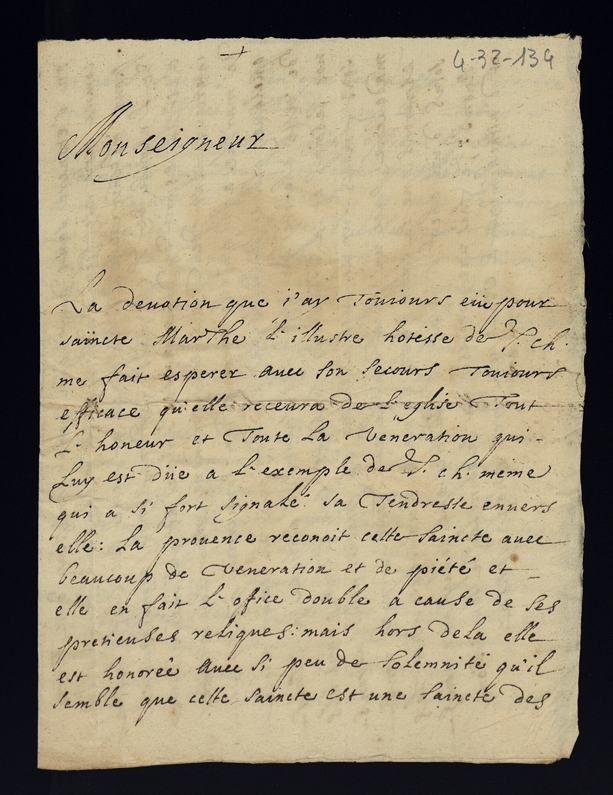 4-32-134
Monseigneur
La deuotion que i'ay Touiours eüe pour
saincte Marthe L'illustre hotesse de J. ch.
me fait esperer auec son secours Touiours
efficace qu'elle receura de L'eglise Tout
L'honeur et Toute La Veneration qui
Luy est düe a L'exemple de J. ch. meme
qui a si fort signalé sa Tendresse enuers
elle: La prouence reconoit cette saincte auec
beaucoup de Veneration et de piété et
elle en fait L'ofice double a cause de ses
pretieuses reliques: mais hors dela elle
est honoreé auec si peu de solemnité qu'il
semble que cette saincte est une saincte des